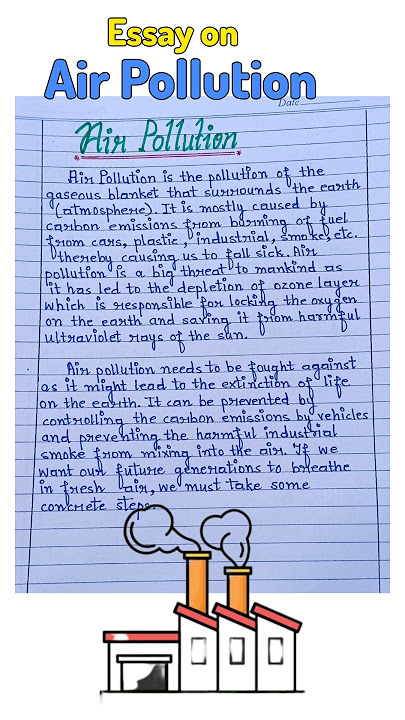 Essay on
Air Pollution
Date
Air Pollution
Air Pollution is the pollution of the
gaseous blanket that surrounds the earth
(atmosphere). It is mostly caused by
carbon emissions from burning of fuel
from cars, plastic, industrial, smoke, etc.
thereby causing us to fall sick. Air
pollution is a big threat to mankind as
it has led to the depletion of ozone layer
which is responsible for locking the oxygen
on the earth and saving it from harmful
ultraviolet rays of the sun.
Air pollution needs to be fought against
as it might lead to the extinction of life
on the earth. It can be prevented by
controlling the carbon emissions by vehicles
and preventing the harmful industrial
smoke from mixing into the air. If we
want our future generations to breathe
in fresh air, we must take some
concrete steps